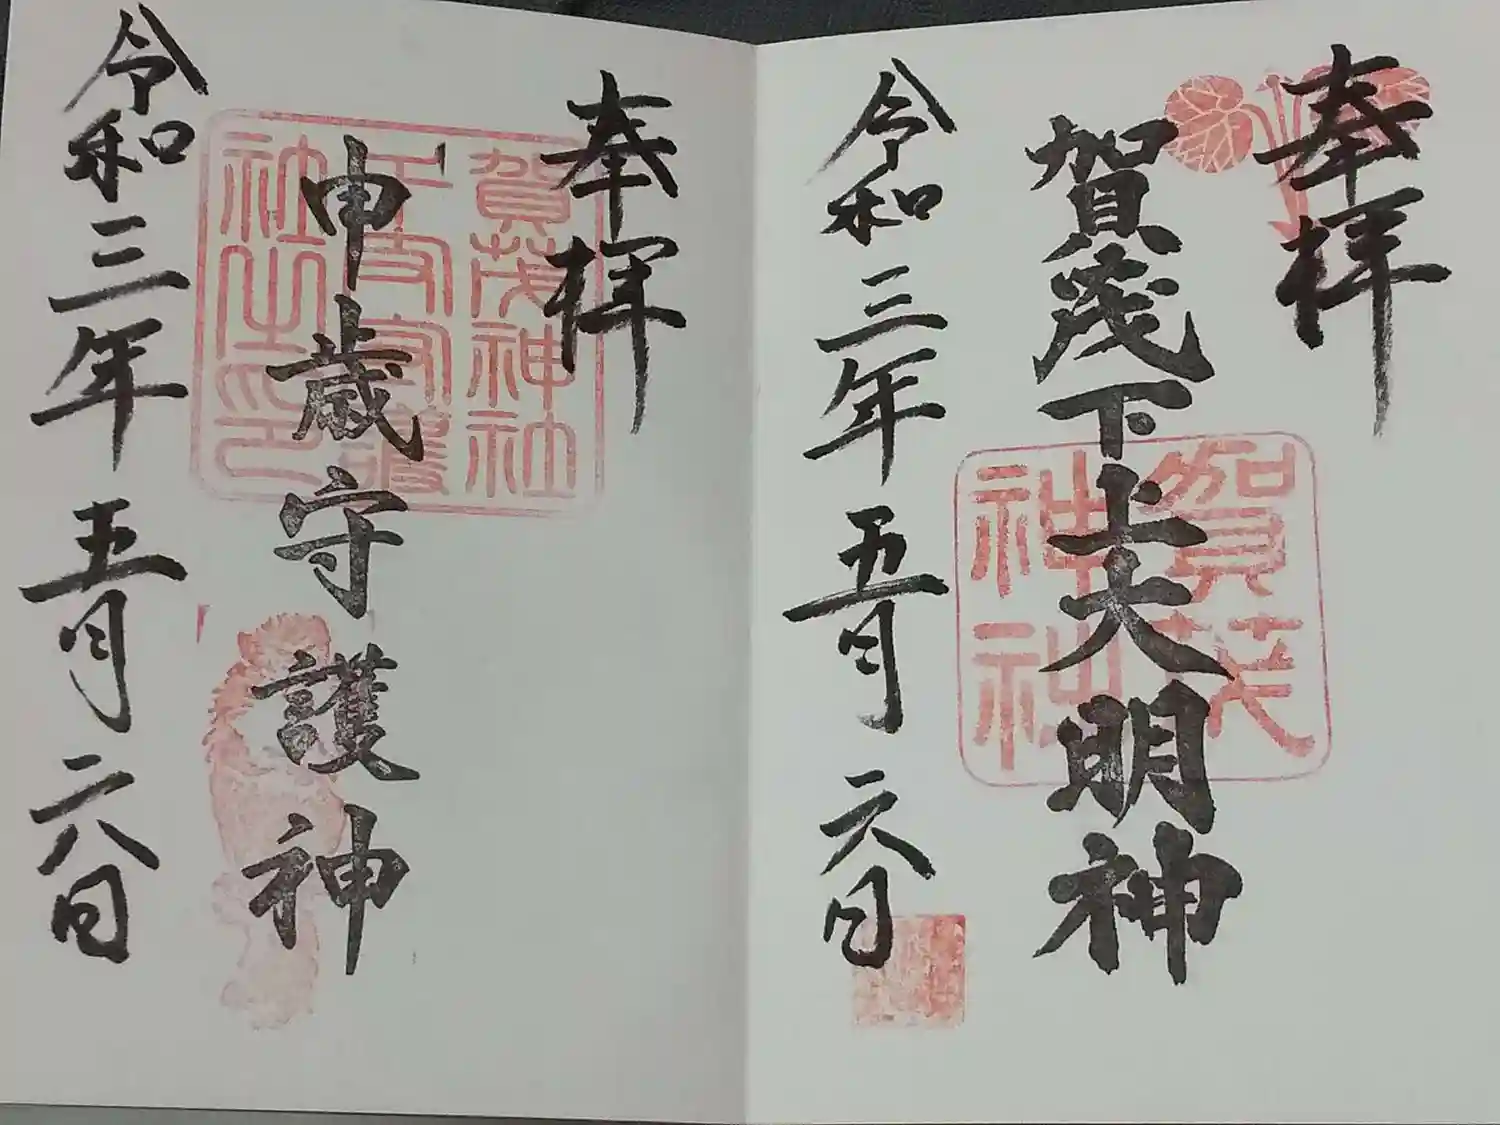 奉拝
賀茂下上大明神
令和三年五月二六日
賀茂
神社
奉拝
申歳守護神
令和三年五月二六日
賀茂神社
社之印